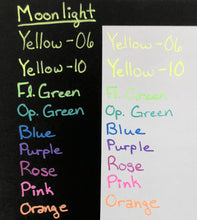 Moonlight
Yellow-06 Yellow-06
Yellow-10 Yellow-10
Fl. Green Fl. Green
Op. Green Op. Green
Blue Blue
Purple Purple
Rose Rose
Pink Pink
Orange Orange